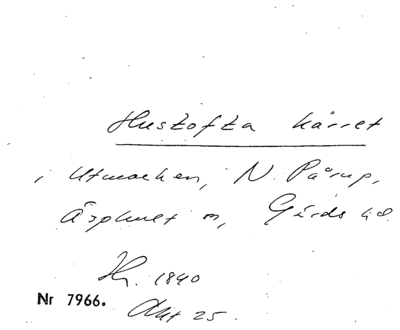 Hustofta kärret
i Utmarken, N. Pårup,
Äsphult sn, Gärds hd.
Hr. 1840
Nr 7966.
Akt 25.